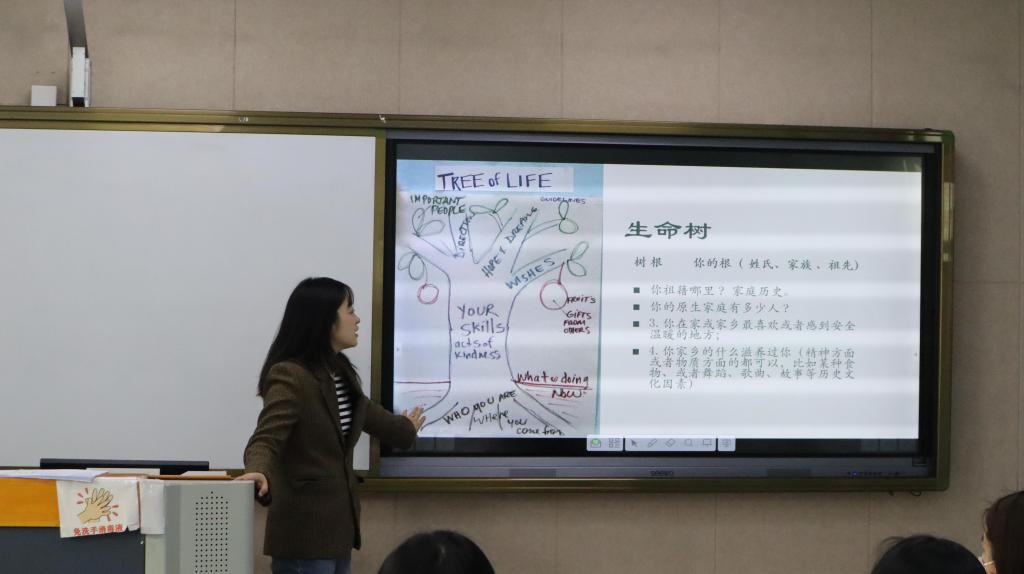 TREE of LIFE
IMPORTANT
PEOPLE
DIRECTION
HOPE & DREAMS
GUIDELINES
WISHES
YOUR
Skills
acts of
kindness
FRUITS
GIFTS
FROM
OTHERS
What u doing
Now
WHO YOU ARE
Where you
come from
生命树
树根 你的根（姓氏、家族、祖先）
■ 你祖籍哪里？家庭历史。
■ 你的原生家庭有多少人？
■ 3. 你在家或家乡最喜欢或者感到安全
温暖的地方；
■ 4. 你家乡的什么滋养过你（精神方面
或者物质方面的都可以，比如某种食
物、或者舞蹈、歌曲、故事等历史文
化因素）
seewo
免洗手消毒液